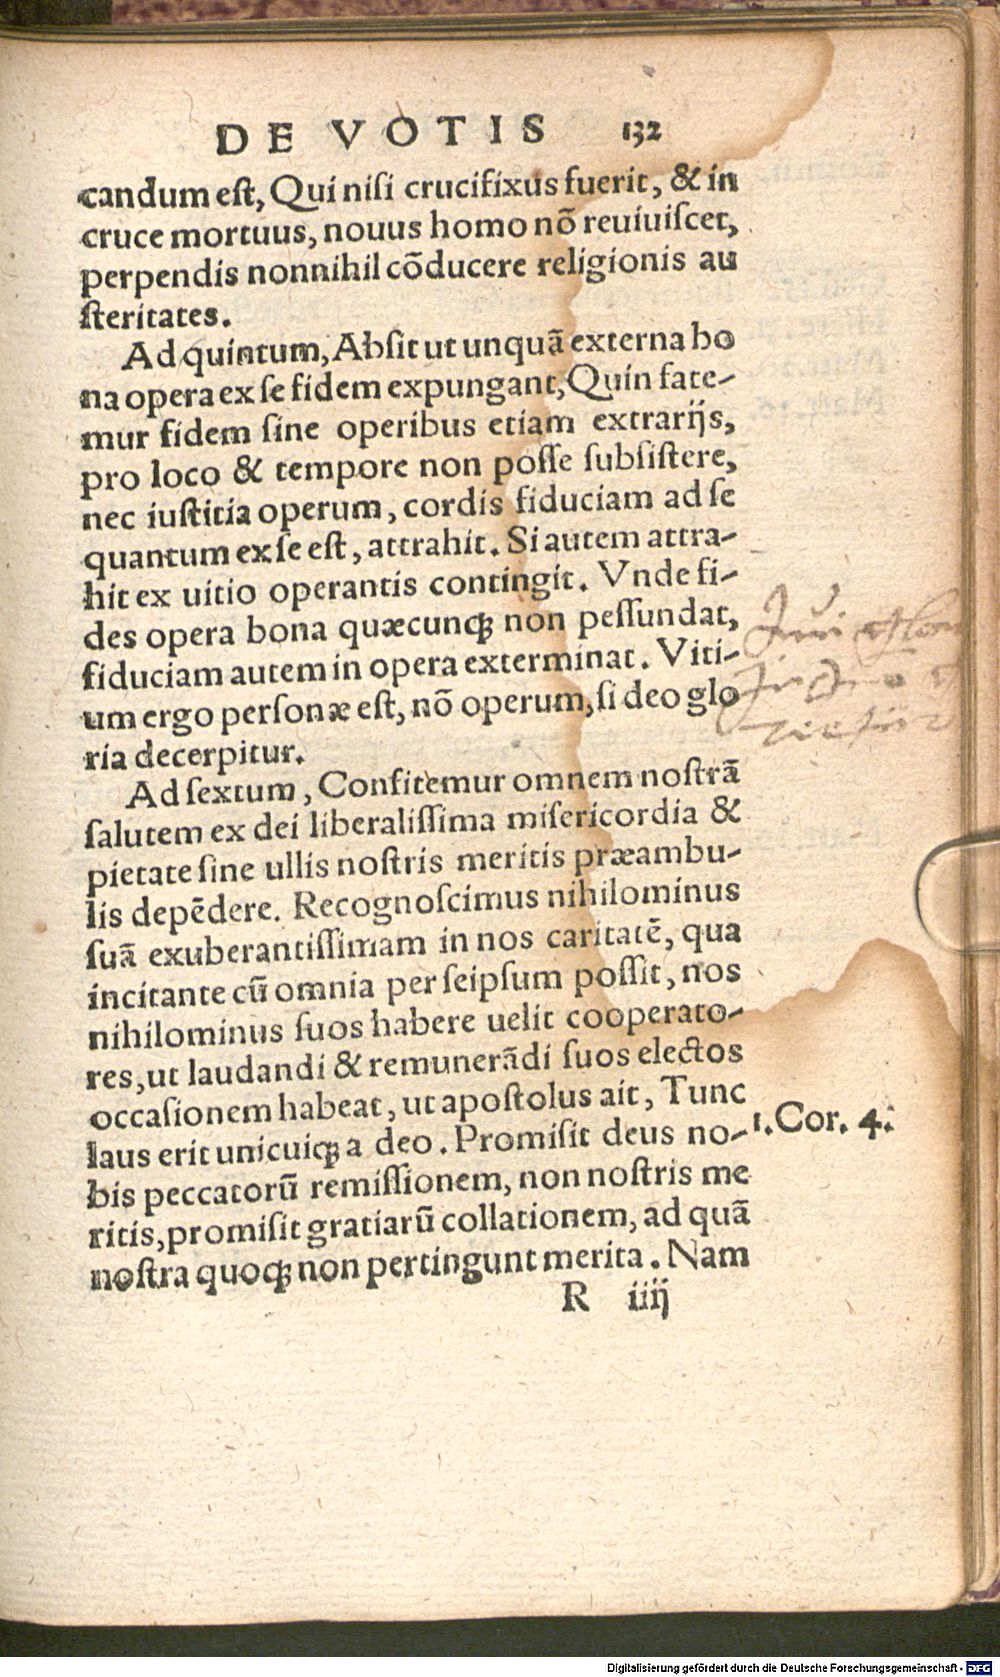 DE VOTIS 132
candum est, Qui nisi crucifixus fuerit, & in
cruce mortuus, nouus homo nō reuiuiscet,
perpendis nonnihil cōducere religionis au
steritates.
Ad quintum, Absit ut unquā externa bo
na opera ex se fidem expungant, Quin fate-
mur fidem sine operibus etiam extrarijs,
pro loco & tempore non posse subsistere,
nec iustitia operum, cordis fiduciam ad se
quantum ex se est, attrahit. Si autem attra-
hit ex uitio operantis contingit. Vnde fi-
des opera bona quæcunqꝫ non pessundat,
fiduciam autem in opera exterminat. Viti-
um ergo personæ est, nō operum, si deo glo
ria decerpitur.
Ad sextum, Confitemur omnem nostrā
salutem ex dei liberalissima misericordia &
pietate sine ullis nostris meritis præambu-
lis depēdere. Recognoscimus nihilominus
suā exuberantissimam in nos caritatē, qua
incitante cū omnia per seipsum possit, nos
nihilominus suos habere uelit cooperato-
res, ut laudandi & remunerādi suos electos
occasionem habeat, ut apostolus ait, Tunc
laus erit unicuiqꝫ a deo. Promisit deus no-
1. Cor. 4.
bis peccatorū remissionem, non nostris me
ritis, promisit gratiarū collationem, ad quā
nostra quoqꝫ non pertingunt merita. Nam
R iiij
Digitalisierung gefördert durch die Deutsche Forschungsgemeinschaft - DFG